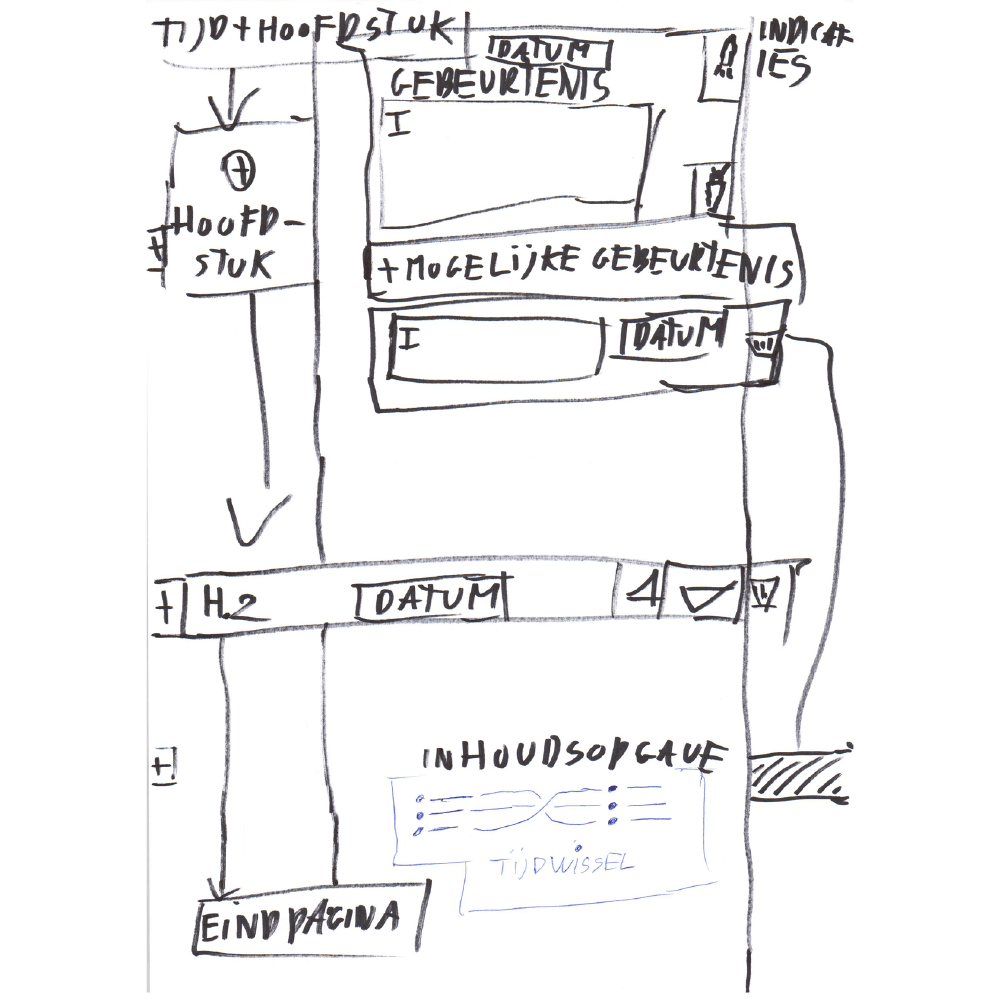 TIJD+HOOFDSTUK
INDICAT-
IES
DATUM
GEBEURTENIS
I
+
HOOFD-
STUK
+
+ MOGELIJKE GEBEURTENIS
I
DATUM
+
H.2
DATUM
+
INHOUDSOPGAVE
TIJDWISSEL
EINDPAGINA